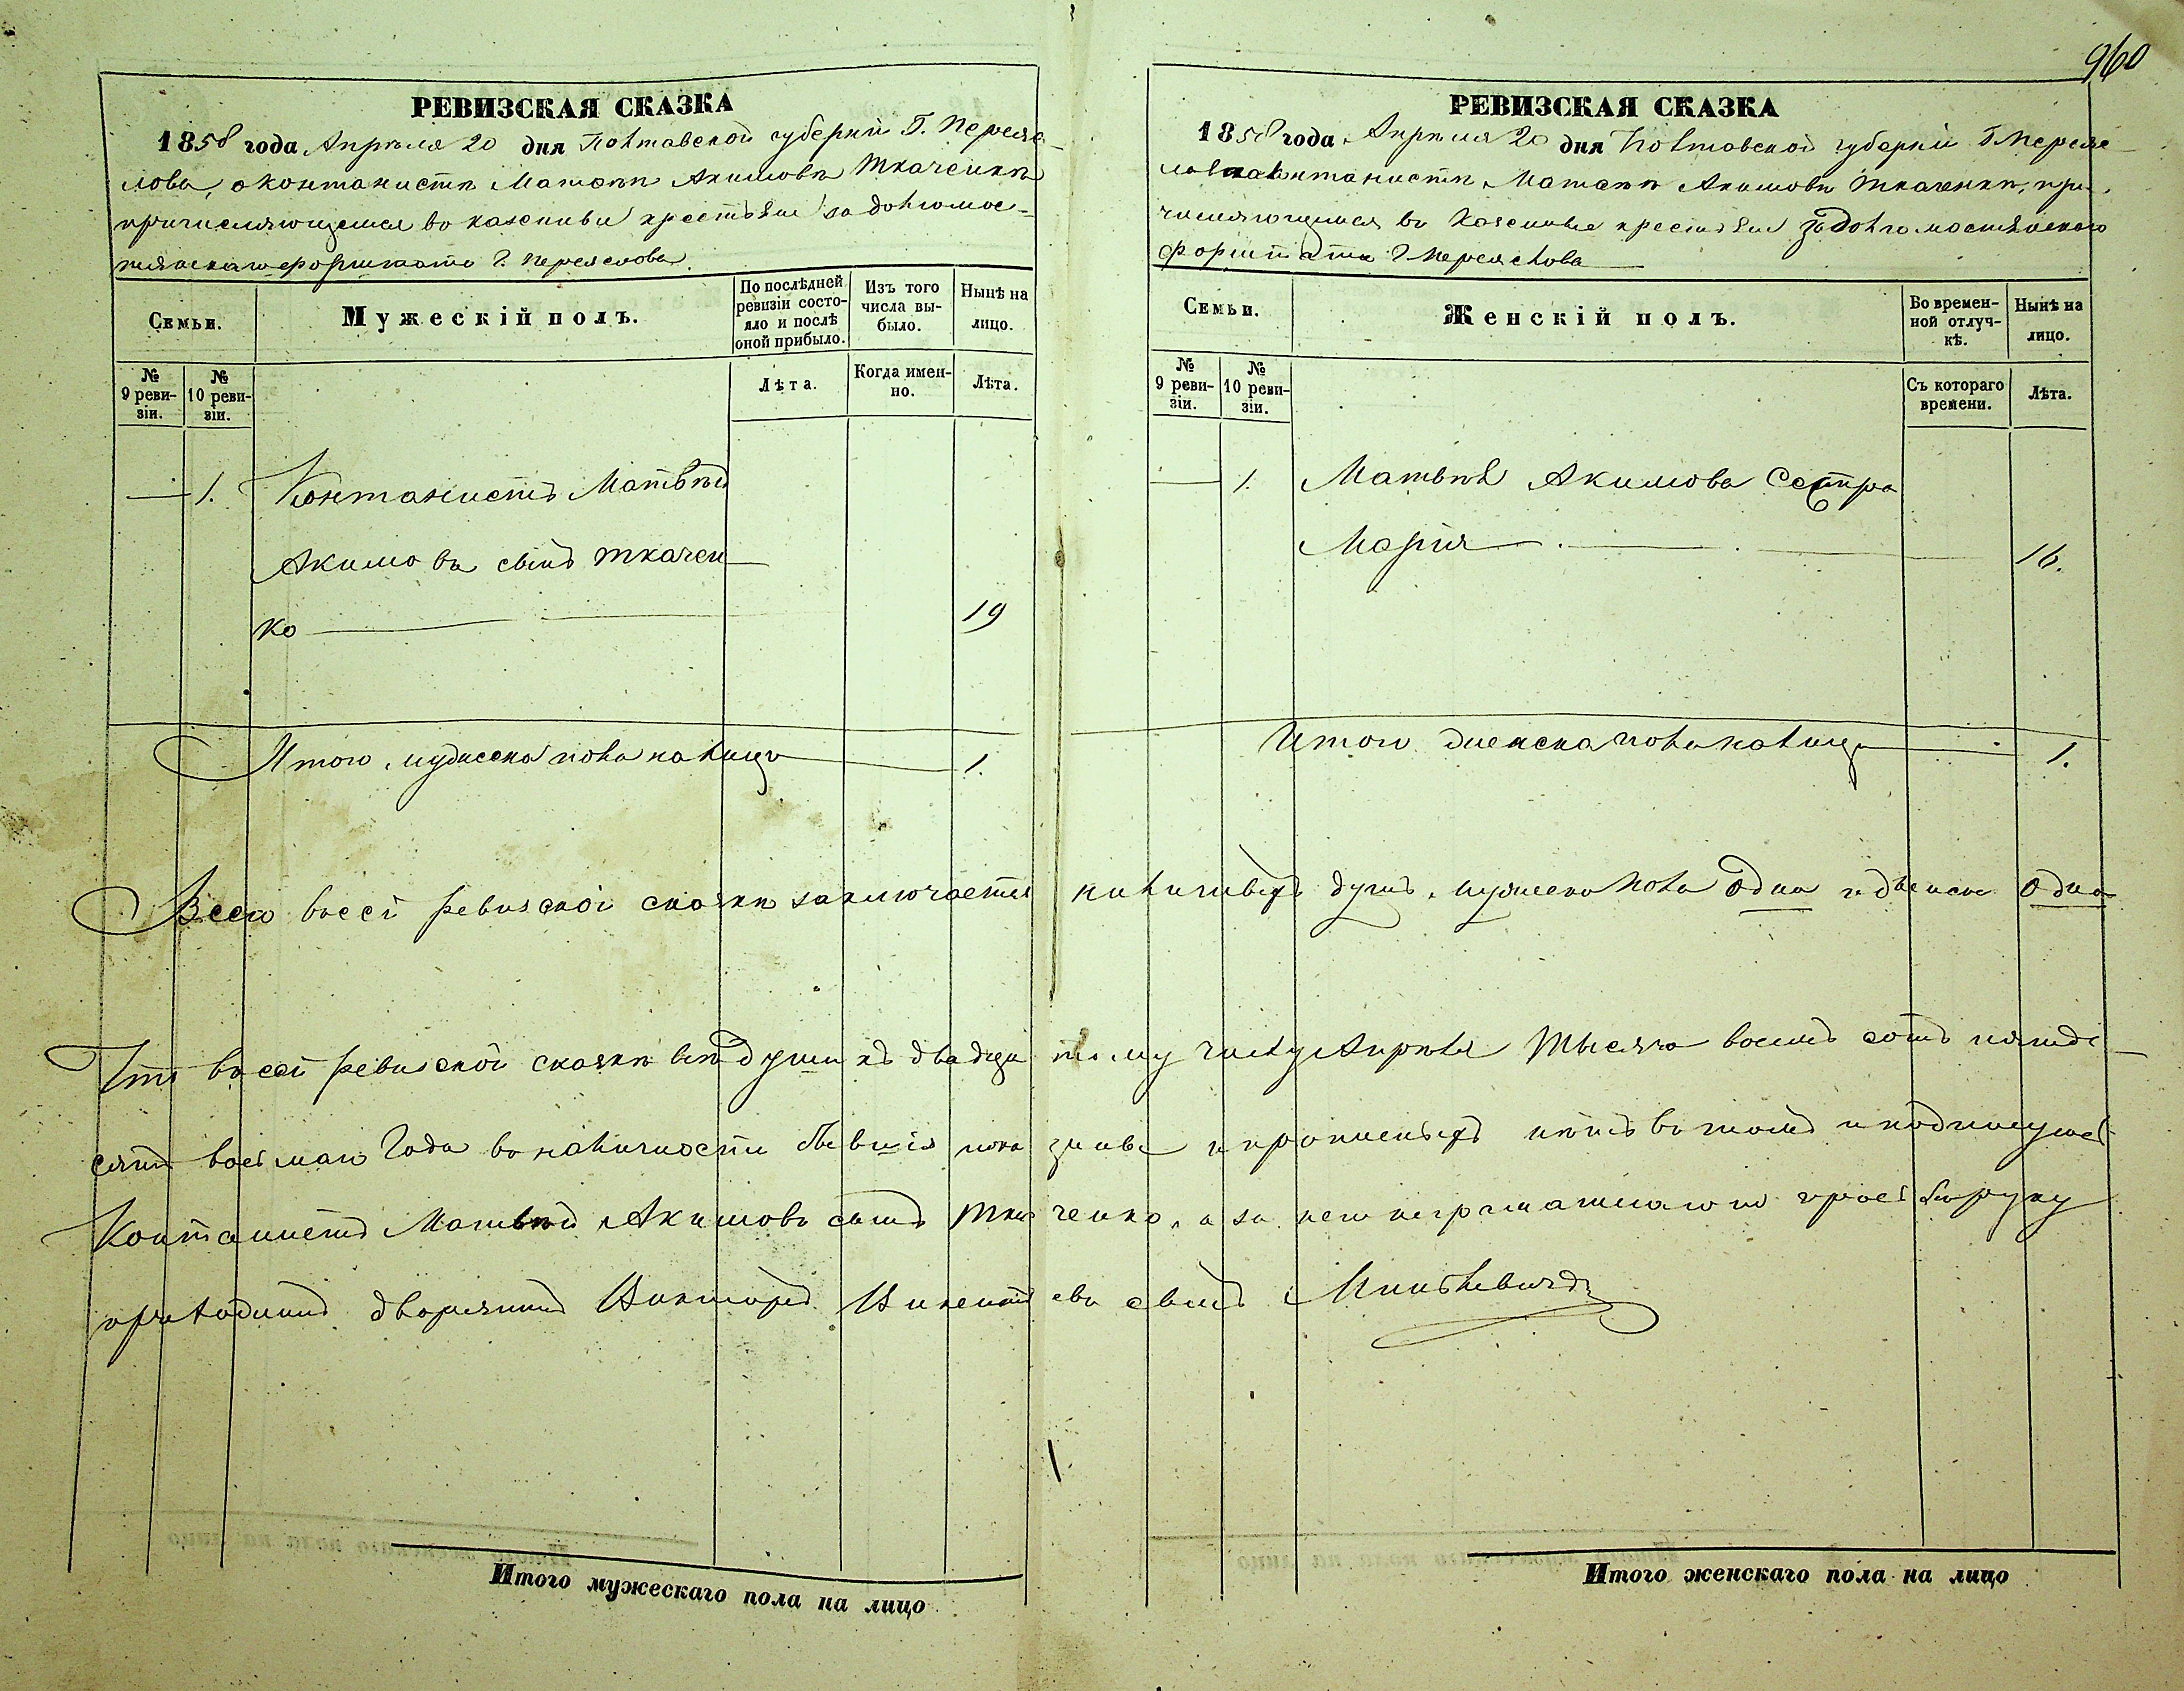 960
РЕВИЗСКАЯ СКАЗКА
1858 года Апреля 20 дня Полтавской губерніи Г. Переяс-
лова, о контонисте Матвеѣ Акимовѣ Ткаченкѣ
причисляющемся во казенные крестьяне за долгомос-
тянскаго форштата Г. Переяслова
Семьи.
Мужескій полъ.
По послѣдней ревизіи состояло и послѣ оной прибыло.
Изъ того числа выбыло.
Нынѣ на лицо.
№ 9 ревизіи.
№ 10 ревизіи.
Лѣта.
Когда именно.
Лѣта.
— 1. Контонистъ Матвѣй
Акимовъ сынъ Ткачен-
ко 19
Итого мужеска пола на лицо 1.
РЕВИЗСКАЯ СКАЗКА
1858 года Апреля 20 дня Полтавской губерніи Г. Переяс-
лова о контонисте Матвеѣ Акимовѣ Ткаченкѣ, при-
числяющемся во казенные крестьяне за долгомостянскаго
форштата Г. Переяслова
Семьи.
Женскій полъ.
Во временной отлучкѣ.
Нынѣ на лицо.
№ 9 ревизіи.
№ 10 ревизіи.
Съ котораго времени.
Лѣта.
— 1. Матвѣя Акимова Сестра
Марія 16.
Итого женска пола на лицо 1.
Всего в сей ревизской сказкѣ заключается наличныхъ душъ, мужеска пола одна и женска одна
Что в сей ревизской сказкѣ всѣ души къ двадцатому числу Апрѣля тысяча восемь сотъ пятьде-
сятъ восьмаго Года в наличности бывшія показаны и прописныхъ нѣтъ в томъ и подписуюсь
Контонистъ Матвѣй Акимовъ сынъ Ткаченко, а за него неграматнаго по прозьбѣ руку
приложилъ дворянинъ Викторъ Викентіевъ сынъ
Итого мужескаго пола на лицо
Итого женскаго пола на лицо